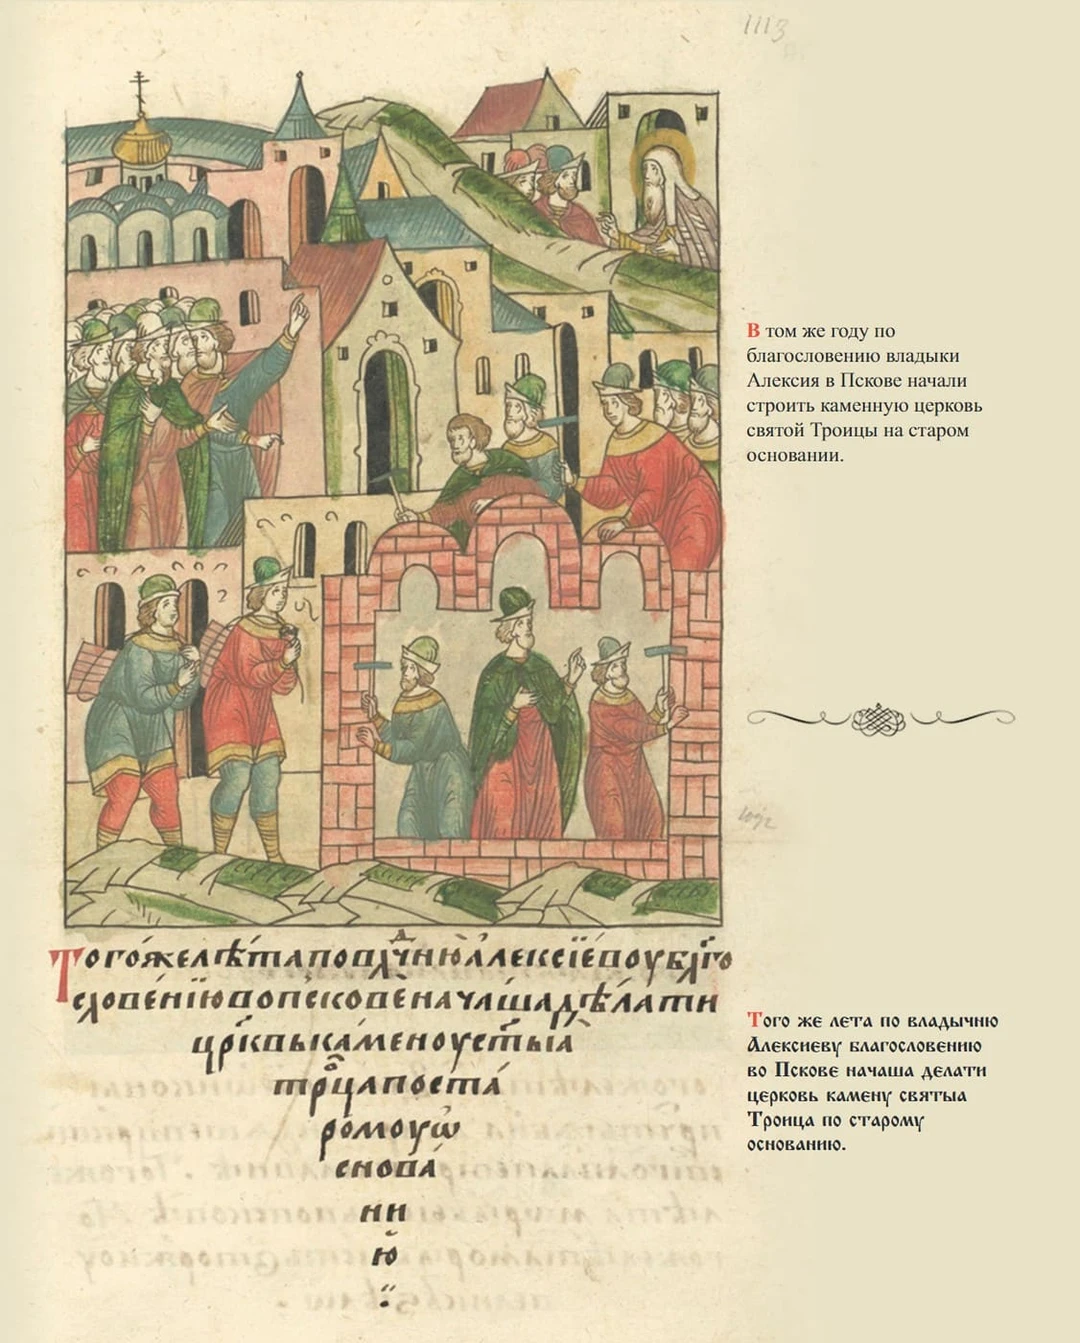 1113
В том же году по
благословению владыки
Алексия в Пскове начали
строить каменную церковь
святой Троицы на старом
основании.
Того́же лѣта повлⷣчню Алексі́еву блгⷭо
слове́нїю вопско́вѣ нача́ша дѣ́лати
црк҃вь ка́мену ст҃ы́ѧ
трⷪ҇ца поста́
ро́моу ѡ҆
снова́
ни
ю̈
Того же лета по владычню
Алексиеву благословению
во Пскове начаша делати
церковь камену святыа
Троица по старому
основанию.